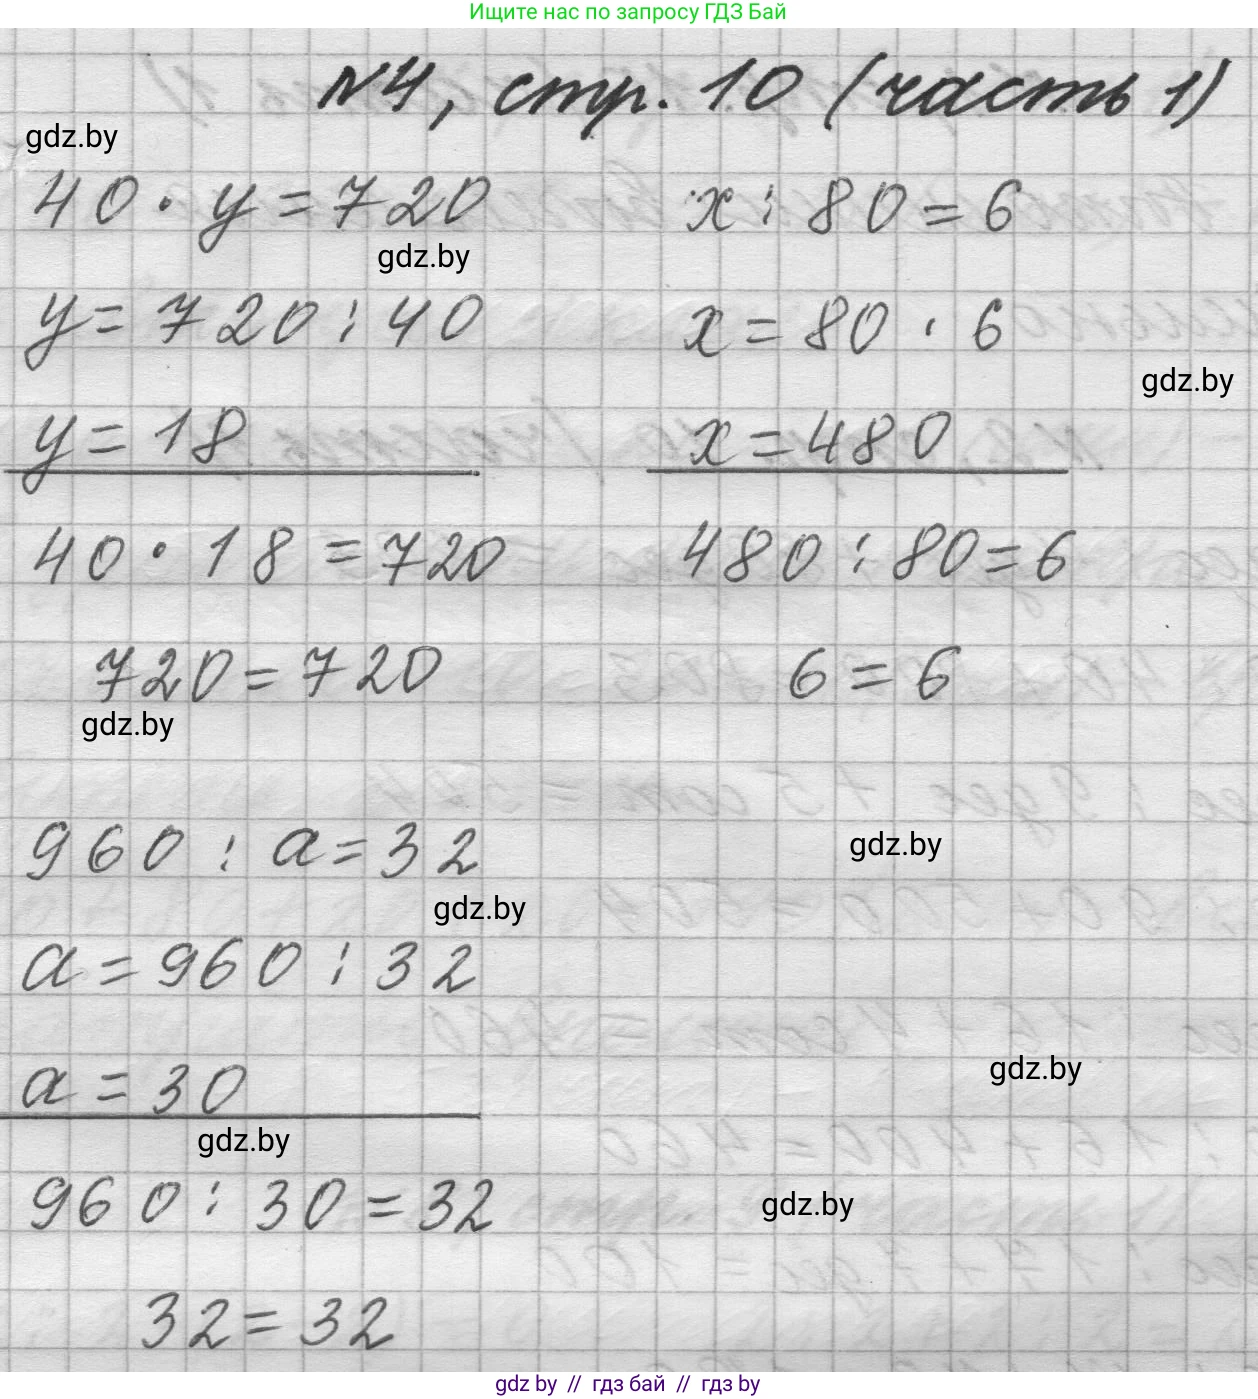 Ищите нас по запросу ГДЗ Бай
№4, стр. 10 (часть 1)
gdz.by
40 · y = 720
x : 80 = 6
gdz.by
y = 720 : 40
x = 80 · 6
gdz.by
y = 18
x = 480
40 · 18 = 720
480 : 80 = 6
720 = 720
6 = 6
gdz.by
960 : a = 32
gdz.by
gdz.by
a = 960 : 32
gdz.by
a = 30
gdz.by
960 : 30 = 32
gdz.by
32 = 32
gdz by // гдз бай // гдз by